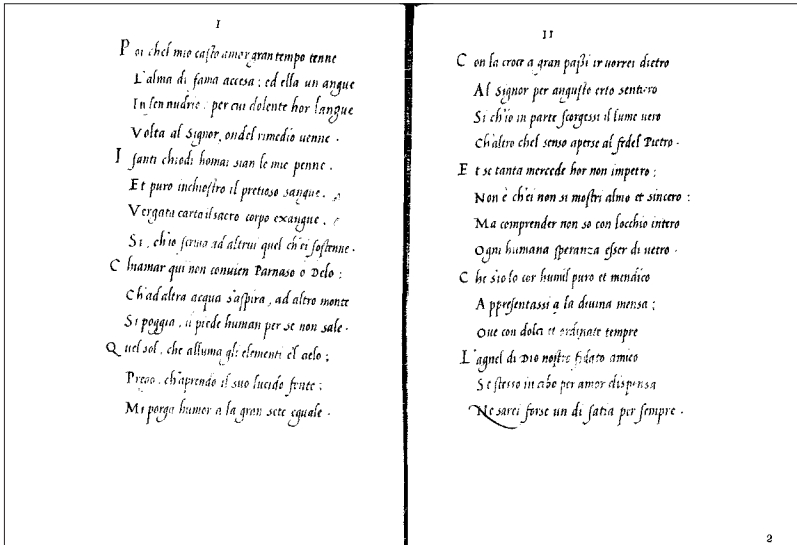 I
Poi chel mio casto amor gran tempo tenne
L'alma di fama accesa; ed ella un angue
In sen nudrio; per cui dolente hor langue
Volta al Signor, ondel rimedio uenne.
I santi chiodi homai sian le mie penne.
Et puro inchiostro il pretioso sangue.
Vergata carta il sacro corpo exangue.
Si, ch'io scriua ad altrui quel ch'ei sostenne.
Chiamar qui non conuien Parnaso o Delo;
Ch'ad altra acqua s'aspira, ad altro monte
Si poggia, u piede human per se non sale.
Quel sol, che alluma gli elementi e'l cielo;
Prego, ch'aprendo il suo lucido fonte;
Mi porga humor a la gran sete eguale.
II
Con la croce a gran passi ir uorrei dietro
Al Signor per angusto erto sentiero
Si ch'io in parte scorgessi il lume uero
Ch'altro chel senso aperse al fedel Pietro.
Et se tanta mercede hor non impetro;
Non è ch'ei non si mostri almo et sincero:
Ma comprender non so con locchio intero
Ogni humana speranza esser di uetro.
Che s'io lo cor humil puro et mendico
Appresentassi a la diuina mensa;
Oue con dolci et ordinate tempre
L'agnel di Dio nostro fidato amico
Se stesso in cibo per amor dispensa
Ne sarei forse un di satia per sempre.
2